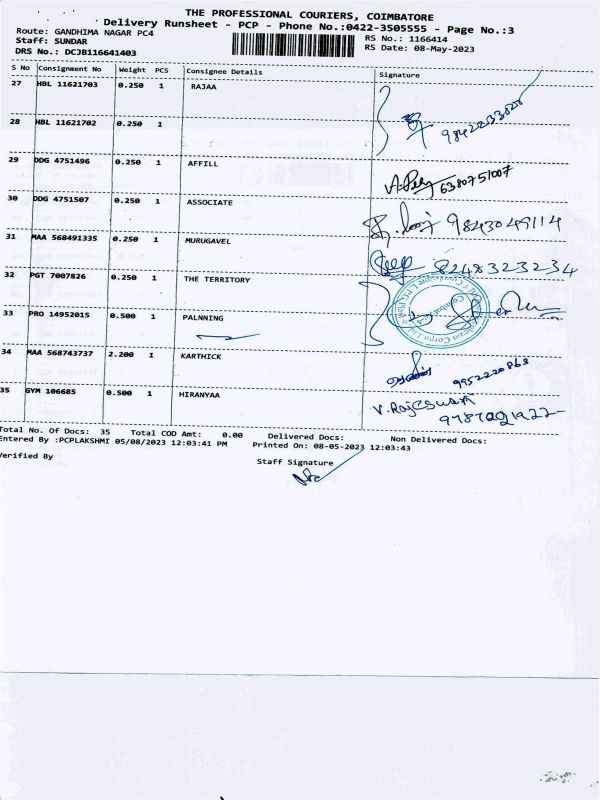 THE PROFESSIONAL COURIERS, COIMBATORE
Delivery Runsheet - PCP - Phone No.:0422-3505555 - Page No.:3
Route: GANDHIMA NAGAR PC4 RS No.: 1166414
Staff: SUNDAR RS Date: 08-May-2023
DRS No.: DCJB116641403
S No Consignment No Weight PCS Consignee Details Signature
27 HBL 11621703 0.250 1 RAJAA
28 HBL 11621702 0.250 1
29 DDG 4751496 0.250 1 AFFILL 6380751007
30 DDG 4751507 0.250 1 ASSOCIATE 9843049114
31 MAA 568491335 0.250 1 MURUGAVEL 8248323234
32 PGT 7007826 0.250 1 THE TERRITORY
33 PRO 14952015 0.500 1 PALNNING
34 MAA 568743737 2.200 1 KARTHICK 9952220863
35 GYM 106685 0.500 1 HIRANYAA V. Rajeswari
Total No. Of Docs: 35 Total COD Amt: 0.00 Delivered Docs: Non Delivered Docs:
Entered By :PCPLAKSHMI 05/08/2023 12:03:41 PM Printed On: 08-05-2023 12:03:43
Verified By Staff Signature